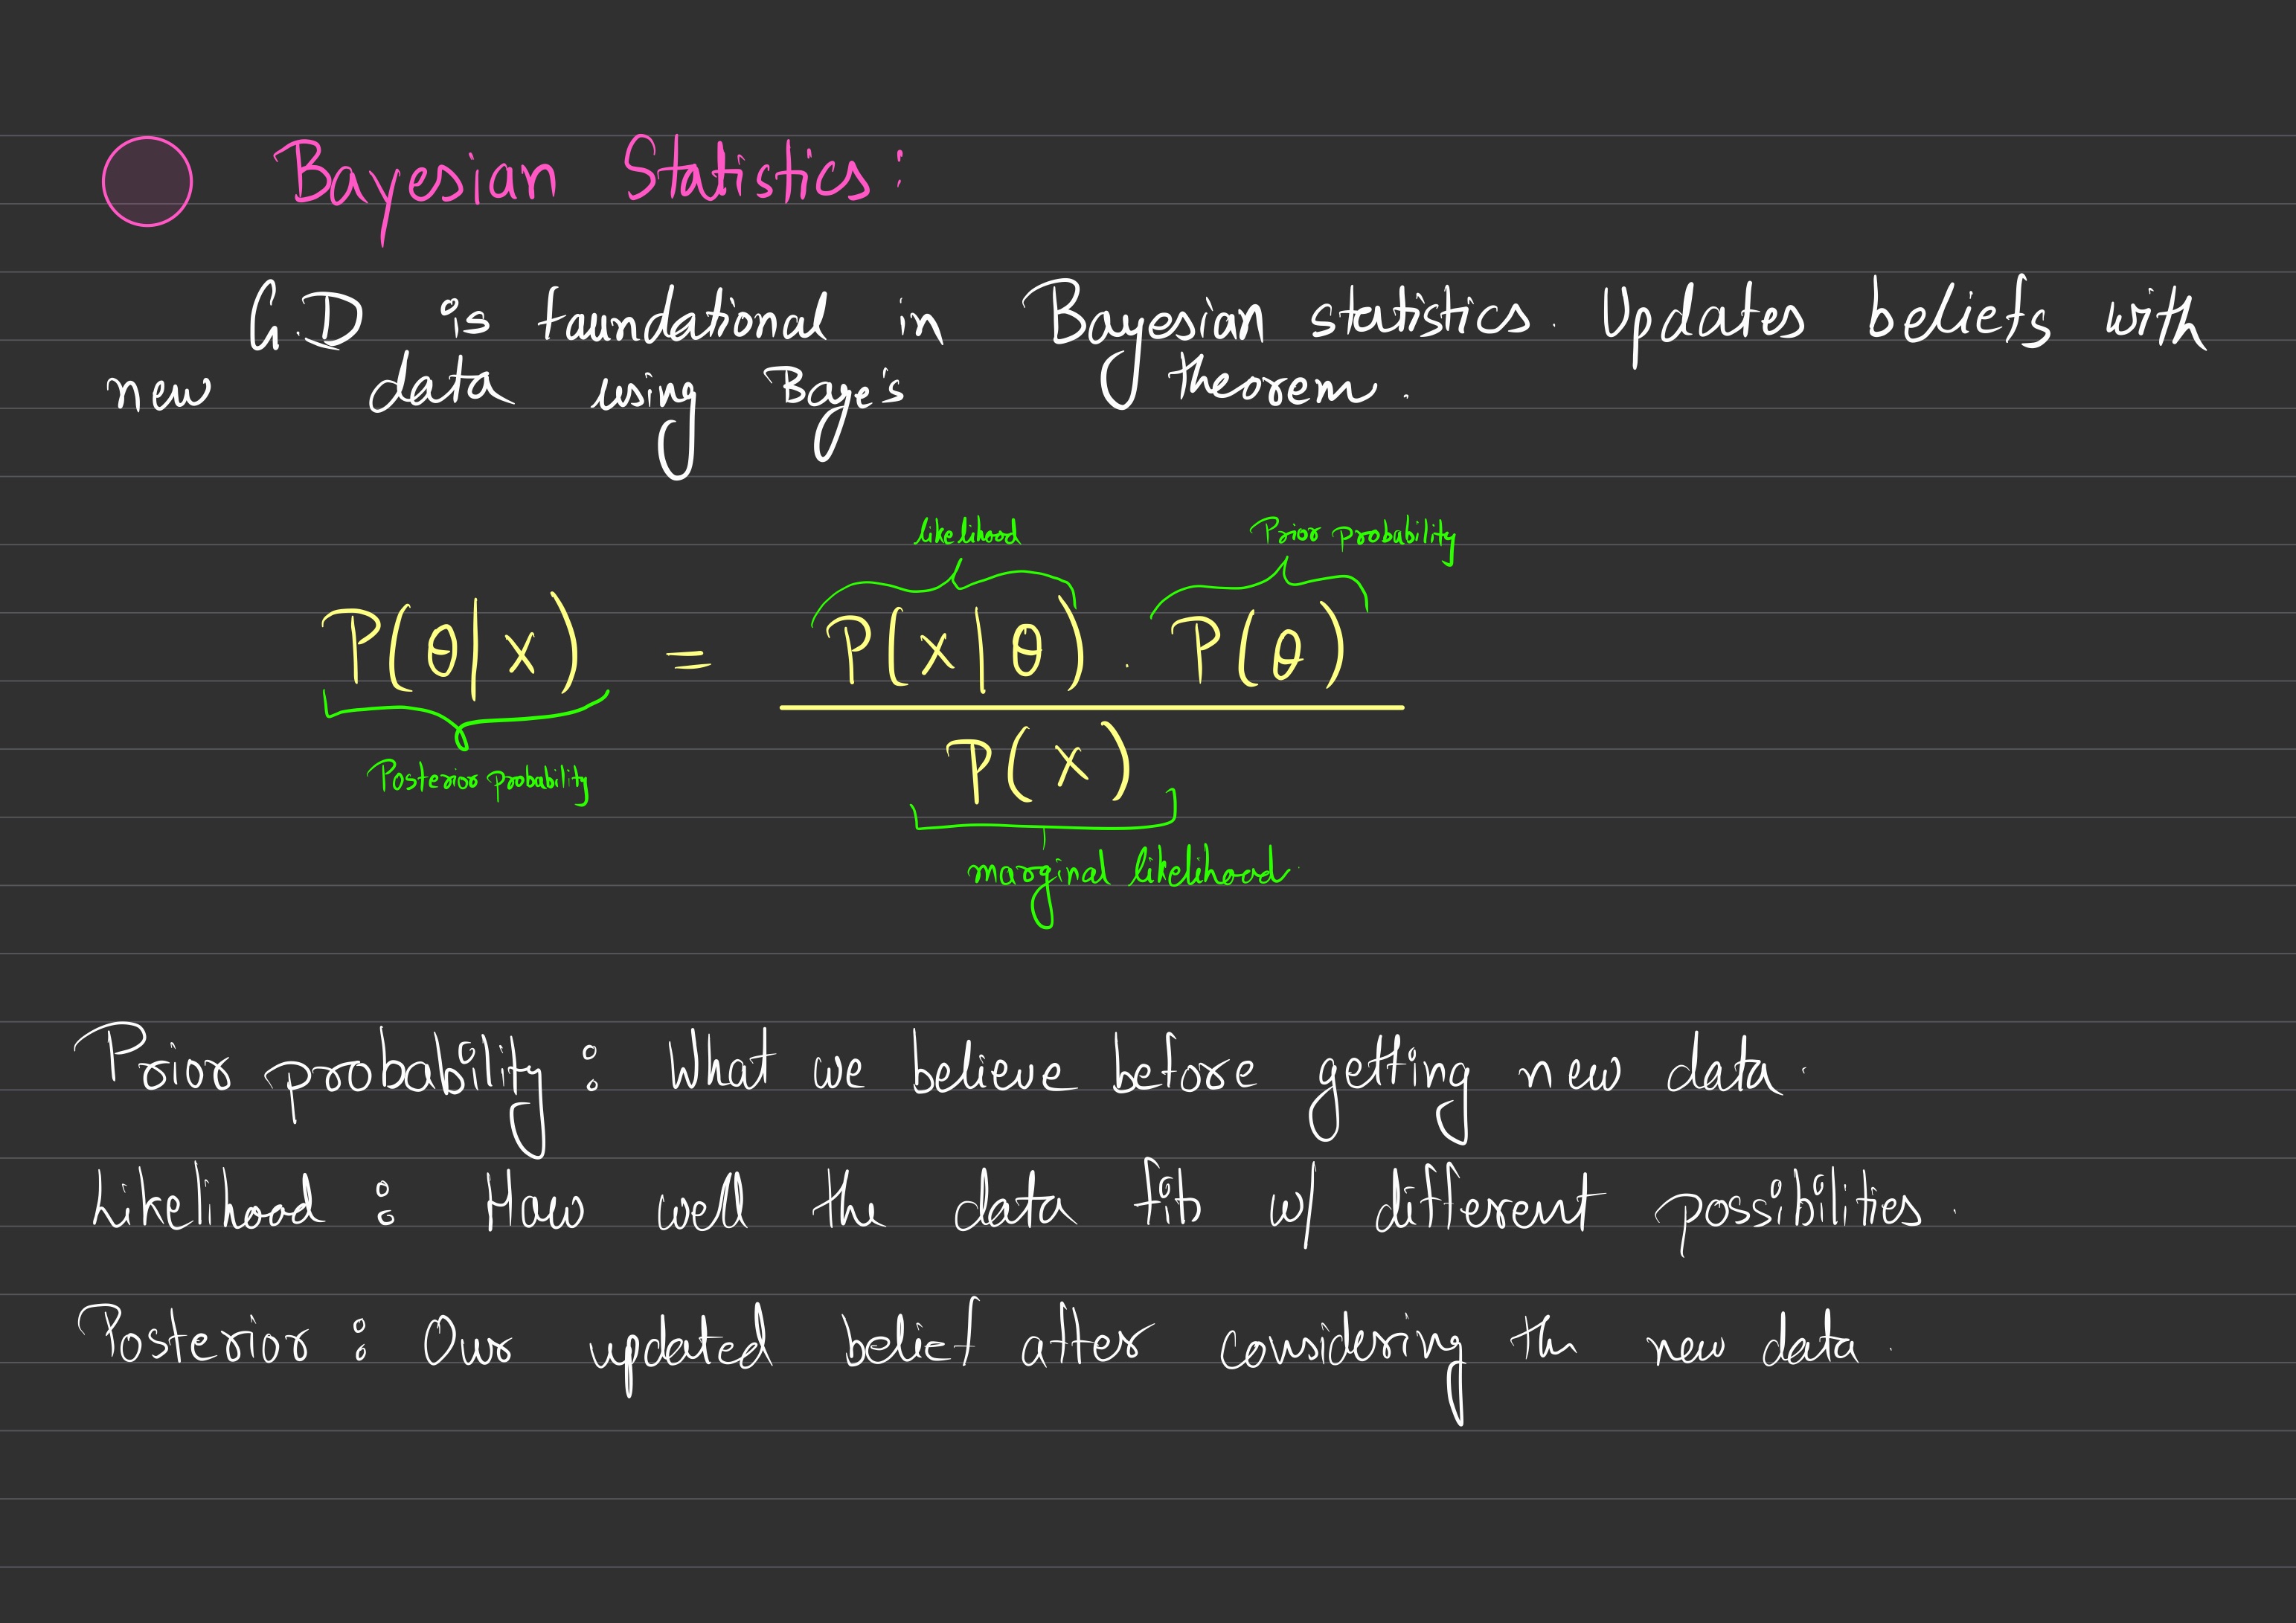 Bayesian Statistics:
G.D is foundational in Bayesian statistics. Updates beliefs with
new data using Baye's theorem.
likelihood Prior probability
P(θ|x) = P(x|θ) . P(θ)
Posterior probability
P(x)
marginal likelihood.
Prior probability : What we believe before getting new data.
Likelihood : How well the data fits w/ different possibilities.
Posterior : Our updated belief after considering the new data.